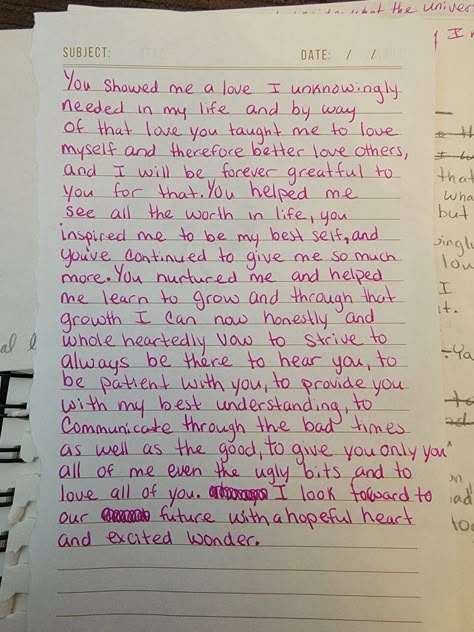 inside what the univers
I h
SUBJECT: DATE: / /
You showed me a love I unknowingly
needed in my life and by way
of that love you taught me to love
myself and therefore better love others,
and I will be forever greatful to
you for that. You helped me
see all the worth in life, you
inspired me to be my best self, and
you've continued to give me so much
more. You nurtured me and helped
me learn to grow and through that
growth I can now honestly and
whole heartedly vow to strive to
always be there to hear you, to
be patient with you, to provide you
with my best understanding, to
communicate through the bad times
as well as the good, to give you only you
all of me even the ugly bits and to
love all of you. I look forward to
our future with a hopeful heart
and excited wonder.
that
wha
but
ingl
lov
I
t.
-Ya
al l